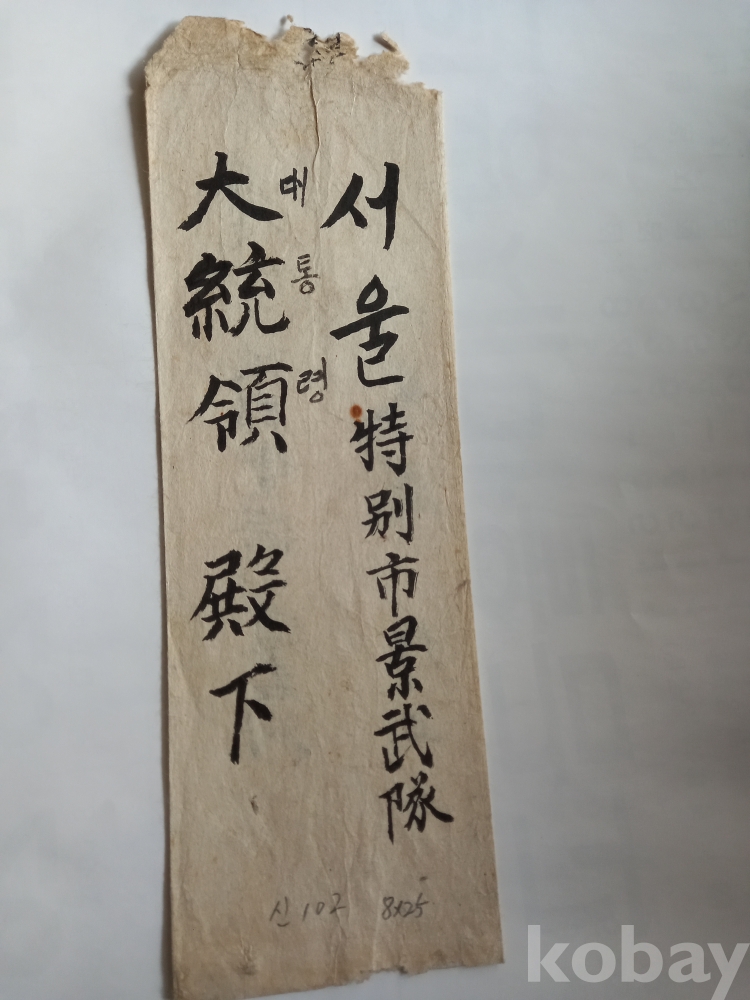 서울特別市景武隊
대통령
大統領 殿下
신 107 8x25
kobay